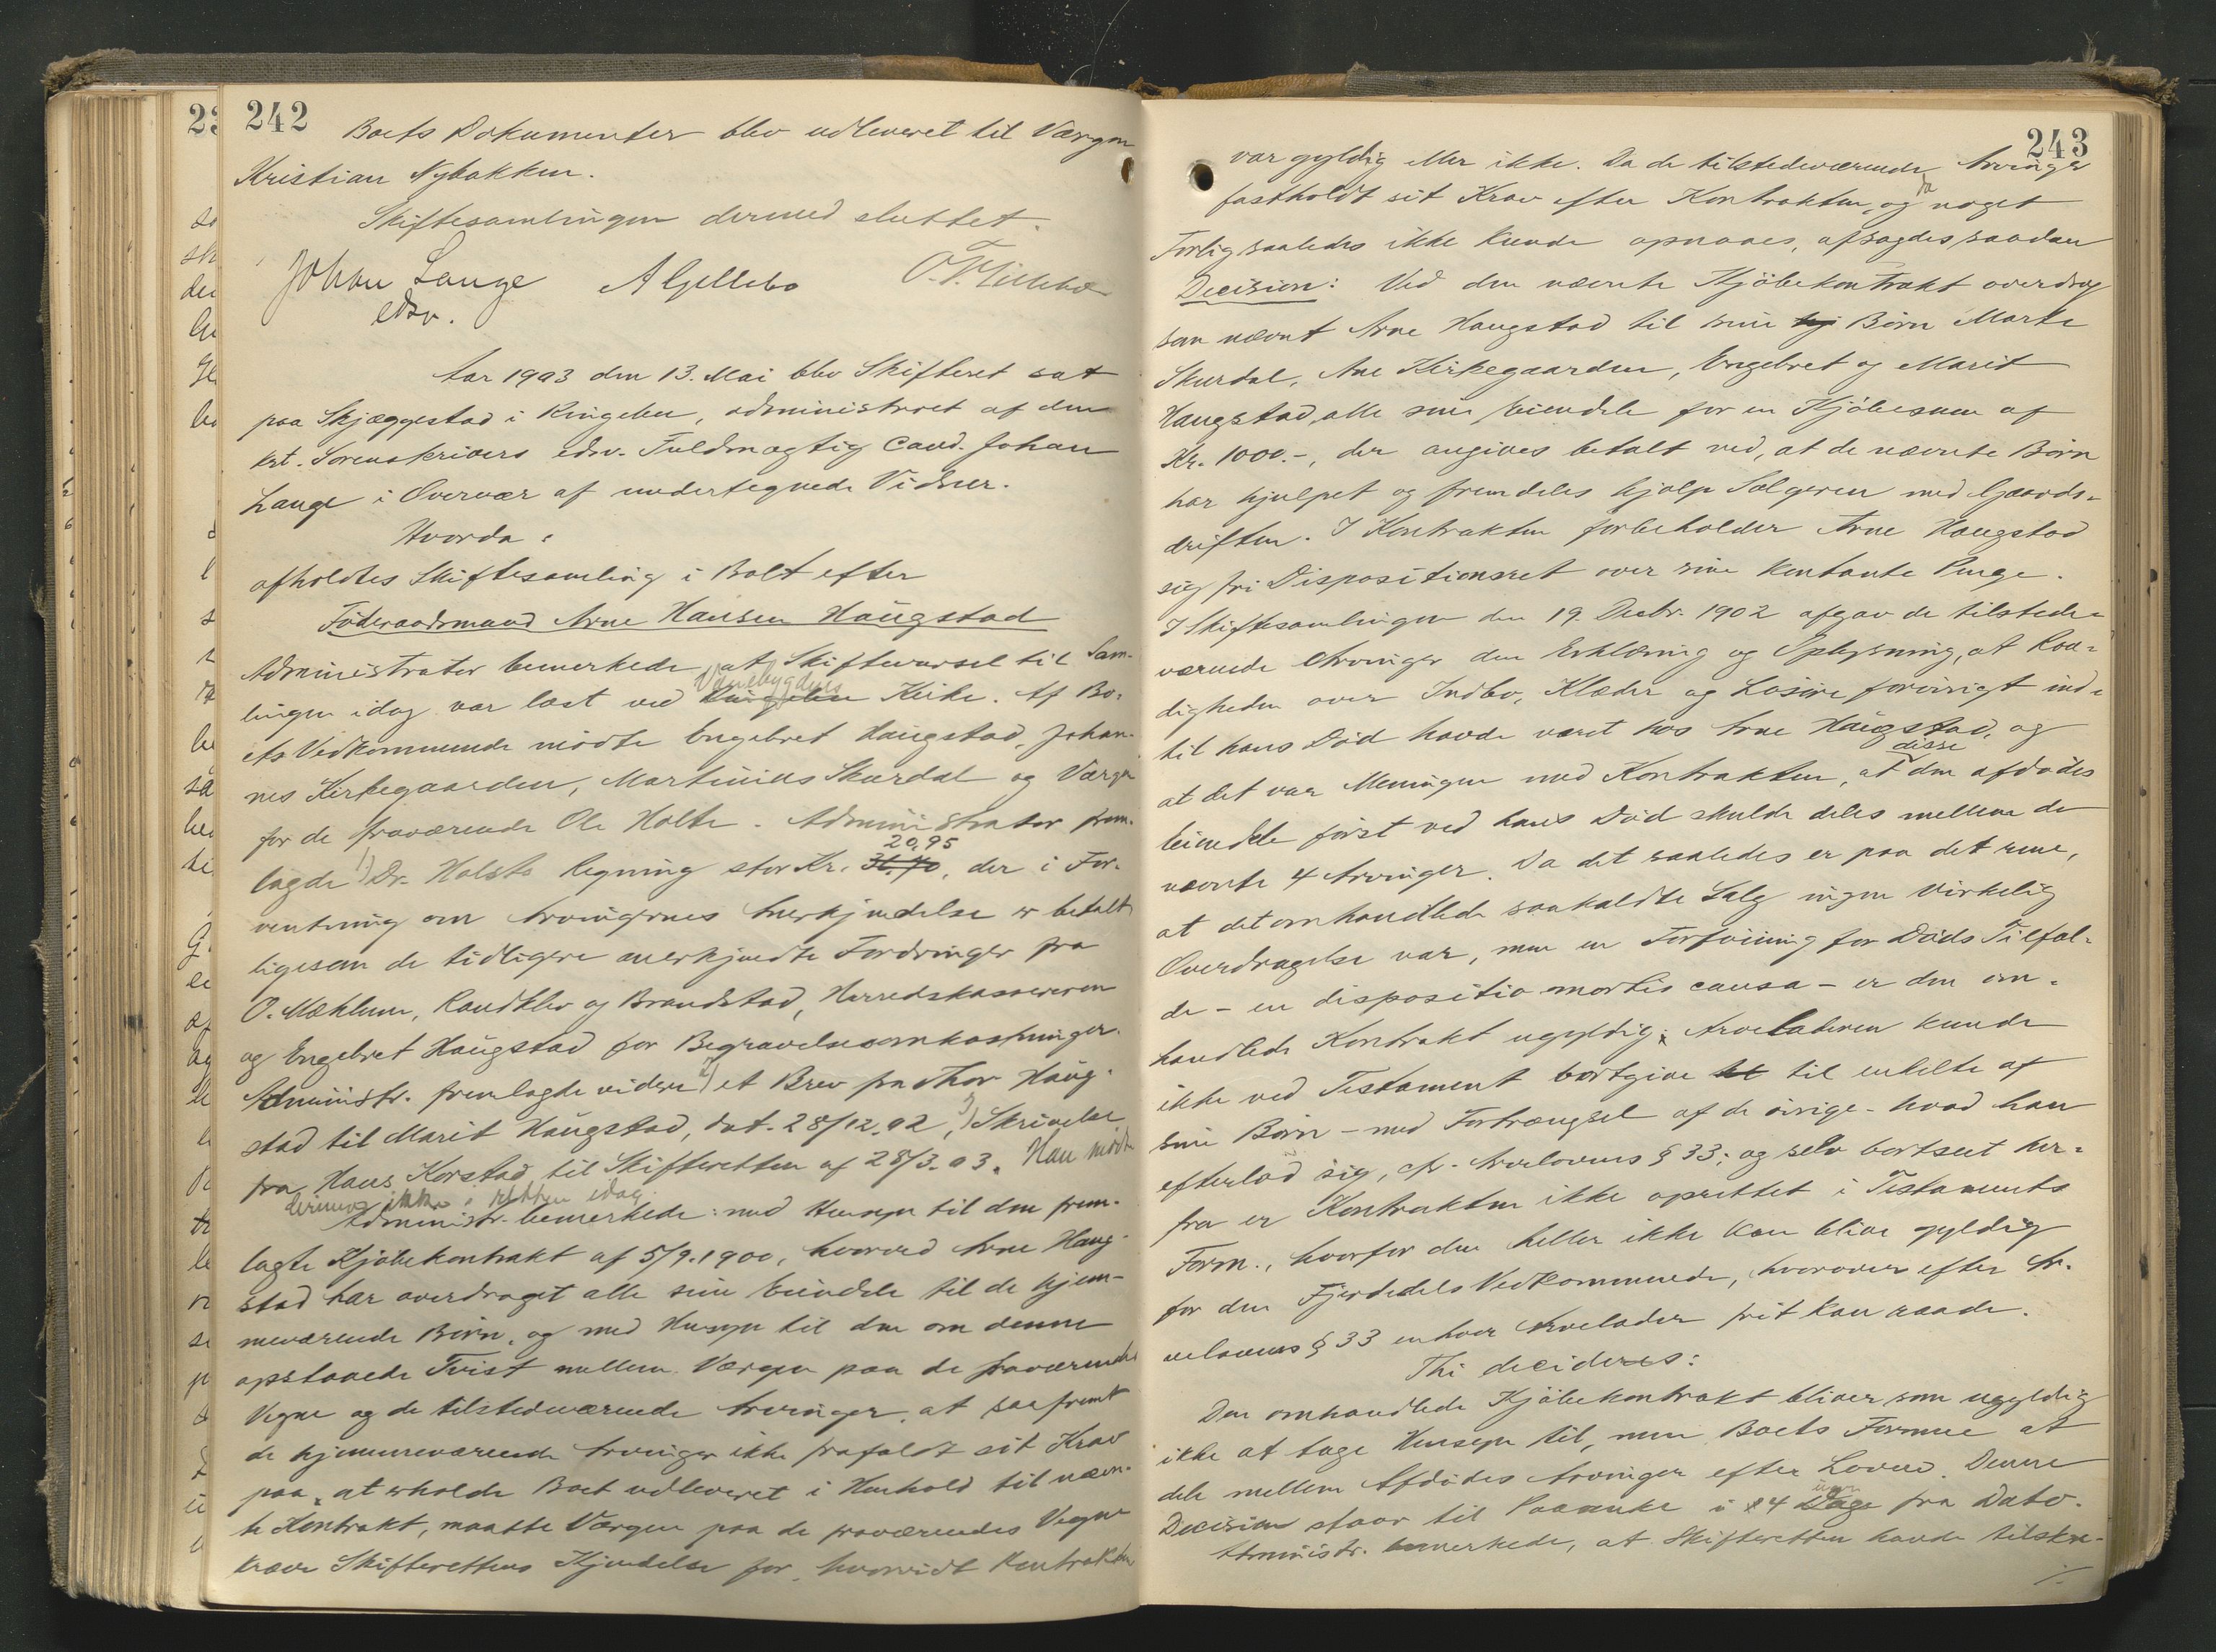 242
Boets Dokumenter blev udleveret til Værgen
Kristian Nybakken.
Skiftesamlingen dermed sluttet.
Johan Lange A Gillebo O. T. Gillebo
edsv.
Aar 1903 den 13. Mai blev Skifteret sat
paa Skjæggestad i Ringebu, administreret af den
kst. Sorenskrivers edsv. Fuldmægtig Cand. Johan
Lange i Overvær af undertegnede Vidner.
Hvorda:
afholdtes Skiftesamling i Boet efter
Föderaadsmand Arne Hansen Haugstad
Administrator bemerkede, at Skiftevarsel til Sam-
Vænebygdens
lingen idag var læst ved Ringebu Kirke. Af Bo-
ets Vedkommende mödte Engebret Haugstad, Johan-
nes Kirkegaarden, Martinius Skurdal og Værgen
for de fraværende Ole Holte. Administrator frem-
20,95
lagde 1) Dr. Holsts Regning stor Kr. 31.70, der i For-
ventning om Arvingernes Anerkjendelse er betalt
ligesom de tidligere anerkjendte Fordringer fra
O. Mæhlum, Randklev og Brandstad, Herredskassereren
og Engebret Haugstad for Begravelsesomkostninger.
Administr. fremlagde videre 2) et Brev fra Thor Haug-
stad til Marit Haugstad, dat. 28/12.02, 3) Skrivelse
fra Hans Korstad til Skifteretten af 28/3.03. Han mödte
derimod ikke i retten idag.
Administr. bemerkede: med Hensyn til den frem-
lagte Kjöbekontrakt af 5/9.1900, hvorved Arne Haug-
stad har overdraget alle sine Eiendele til de hjem-
meværende Börn, og med Hensyn til den om denne
opstaaede Tvist mellem Værgen paa de fraværendes
Vegne og de tilstedeværende Arvinger, at saafremt
de hjemmeværende Arvinger ikke frafaldt sit Krav
paa, at erholde Boet udleveret i Henhold til nævn-
te Kontrakt, maatte Værgen paa de fraværendes Vegne
kræve Skifterettens Kjendelse for, hvorvidt Kontrakten
243
var gyldig eller ikke. Da de tilstedeværende Arvinger
da
fastholdt sit Krav efter Kontrakten, og noget
Forlig saaledes ikke kunde opnaaes, afsagdes saadan
Decision: Ved den nævnte Kjöbekontrakt overdrog
som nævnt Arne Haugstad til sine hj Börn Marte
Skurdal, Ane Kirkegaarden, Engebret og Marit
Haugstad, alle sine Eiendele for en Kjöbesum af
Kr. 1000.-, der angives betalt ved, at de nævnte Börn
har hjulpet og fremdeles hjælp Sælgeren med Gaards-
driften. I Kontrakten forbeholder Arne Haugstad
sig fri Dispositionsret over sine kontante Penge.
I Skiftesamlingen den 19. Decbr. 1902 afgav de tilstede-
værende Arvinger den Erklæring og Oplysning, at Raa-
digheden over Indbo, Klæder og Lösöre forövrigt ind-
til hans Död havde været hos Arne Haugstad, og
disse
at det var Meningen med Kontrakten, at den afdödes
Eiendele först ved hans Död skulde deles mellem de
nævnte 4 Arvinger. Da det saaledes er paa det rene,
at det omhandlede saakaldte Salg ingen virkelig
Overdragelse var, men en Forföining for Döds Tilfæl-
de - en dispositio mortis causa - er den om-
handlede Kontrakt ugyldig; Arveladeren kunde
ikke ved Testament bortgive til enkelte af
sine Börn - med Fortrængsel af de övrige - hvad han
efterlod sig, cfr. Arvelovens § 33; og selv bortseet her-
fra er Kontrakten ikke oprettet i Testaments
Form, hvorfor den heller ikke kan blive gyldig
for den Fjerdedels Vedkommende, hvorover efter Ar-
velovens § 33 enhver Arvelader frit kan raade.
Thi decideres:
Den omhandlede Kjöbekontrakt bliver som ugyldig
ikke at tage Hensyn til, men Boets Formue at
dele mellem Afdödes Arvinger efter Loven. Denne
uger
Decision staar til Paaanke i 4 Dage fra Dato.
Administr. bemerkede, at Skifteretten havde tilskre-
./.